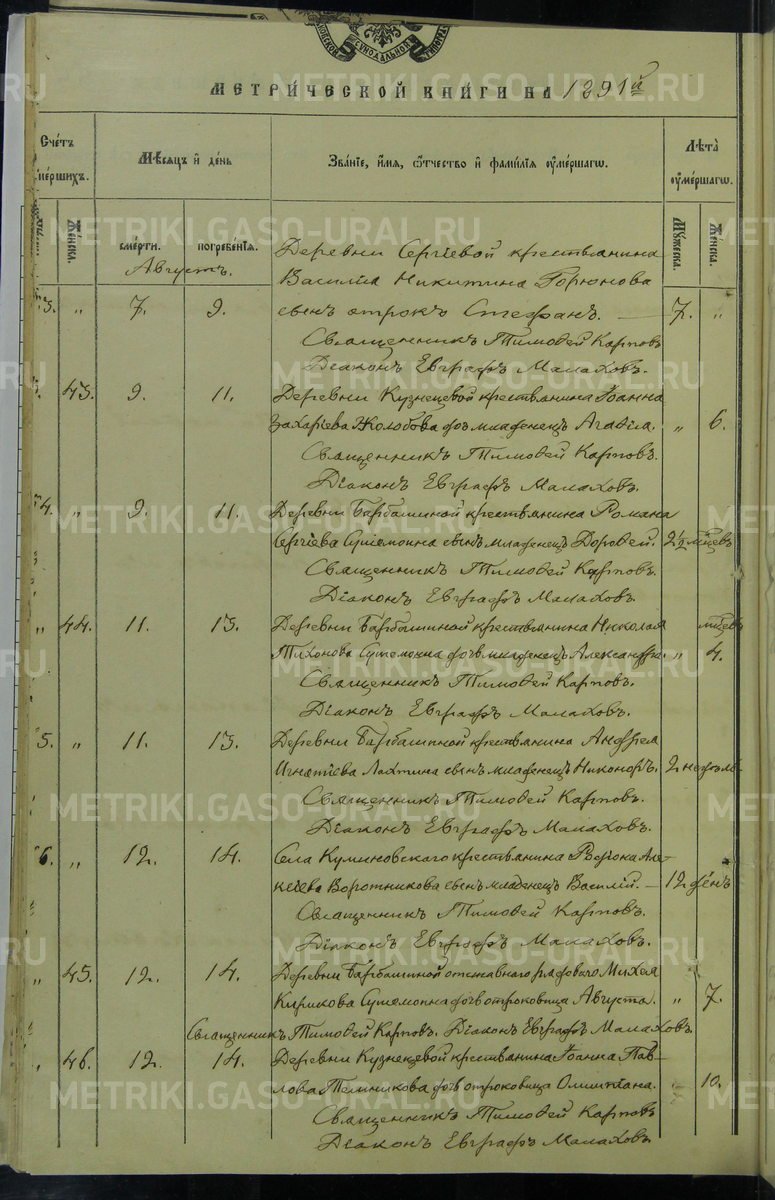 МЕТРИ́ЧЕСКОЙ КНИ́ГИ НА 1891й
Счѐтъ
Мѣсяцъ и̂ де́нь
Зва́нїе, и̂́мя, ѻ҆́тчество и̂ фами́лїя ѹ҆ме́ршагѡ.
Лѣта̀
ѹ҆ме́ршагѡ.
Же́нска.
сме́рти.
погребе́нїя.
Му́жеска.
Же́нска.
Августъ.
Деревни Сергіевой крестьянина
Василія Никитина Горюнова
3. „ 7. 9. сынъ отрокъ Стефанъ. — 7. „
Священникъ Тимоѳей Карповъ
Діаконъ Евграфъ Малаховъ.
43. 9. 11. Деревни Кузнецовой крестьянина Іоанна
Захаріева Жолобова дочь младенецъ Агаѳія. „ 6.
Священникъ Тимоѳей Карповъ.
Діаконъ Евграфъ Малаховъ.
4. „ 9. 11. Деревни Барбашиной крестьянина Романа
Сергіева сынъ младенецъ Дороѳей. 2½ мѣсяц.
Священникъ Тимоѳей Карповъ.
Діаконъ Евграфъ Малаховъ.
„ 44. 11. 13. Деревни Барбашиной крестьянина Николая мѣсяц.
Тихонова дочь младенецъ Александра. „ 4.
Священникъ Тимоѳей Карповъ.
Діаконъ Евграфъ Малаховъ.
5. „ 11. 13. Деревни Барбашиной крестьянина Андрея
Игнатіева Лаптина сынъ младенецъ Никоноръ. 2 недѣли
Священникъ Тимоѳей Карповъ.
Діаконъ Евграфъ Малаховъ.
6. „ 12. 14. Села Куминовскаго крестьянина Родіона Але-
ксіева Воротникова сынъ младенецъ Василій. — 12 день
Священникъ Тимоѳей Карповъ.
Діаконъ Евграфъ Малаховъ.
„ 45. 12. 14. Деревни Барбашиной отставнаго рядоваго Михея
Кирикова дочь отроковица Августа. „ 7.
Священникъ Тимоѳей Карповъ. Діаконъ Евграфъ Малаховъ.
„ 46. 12. 14. Деревни Кузнецовой крестьянина Іоанна Пав-
лова Телминова дочь отроковица Олимпіана. „ 10.
Священникъ Тимоѳей Карповъ
Діаконъ Евграфъ Малаховъ
METRIKI.GASO-URAL.RU